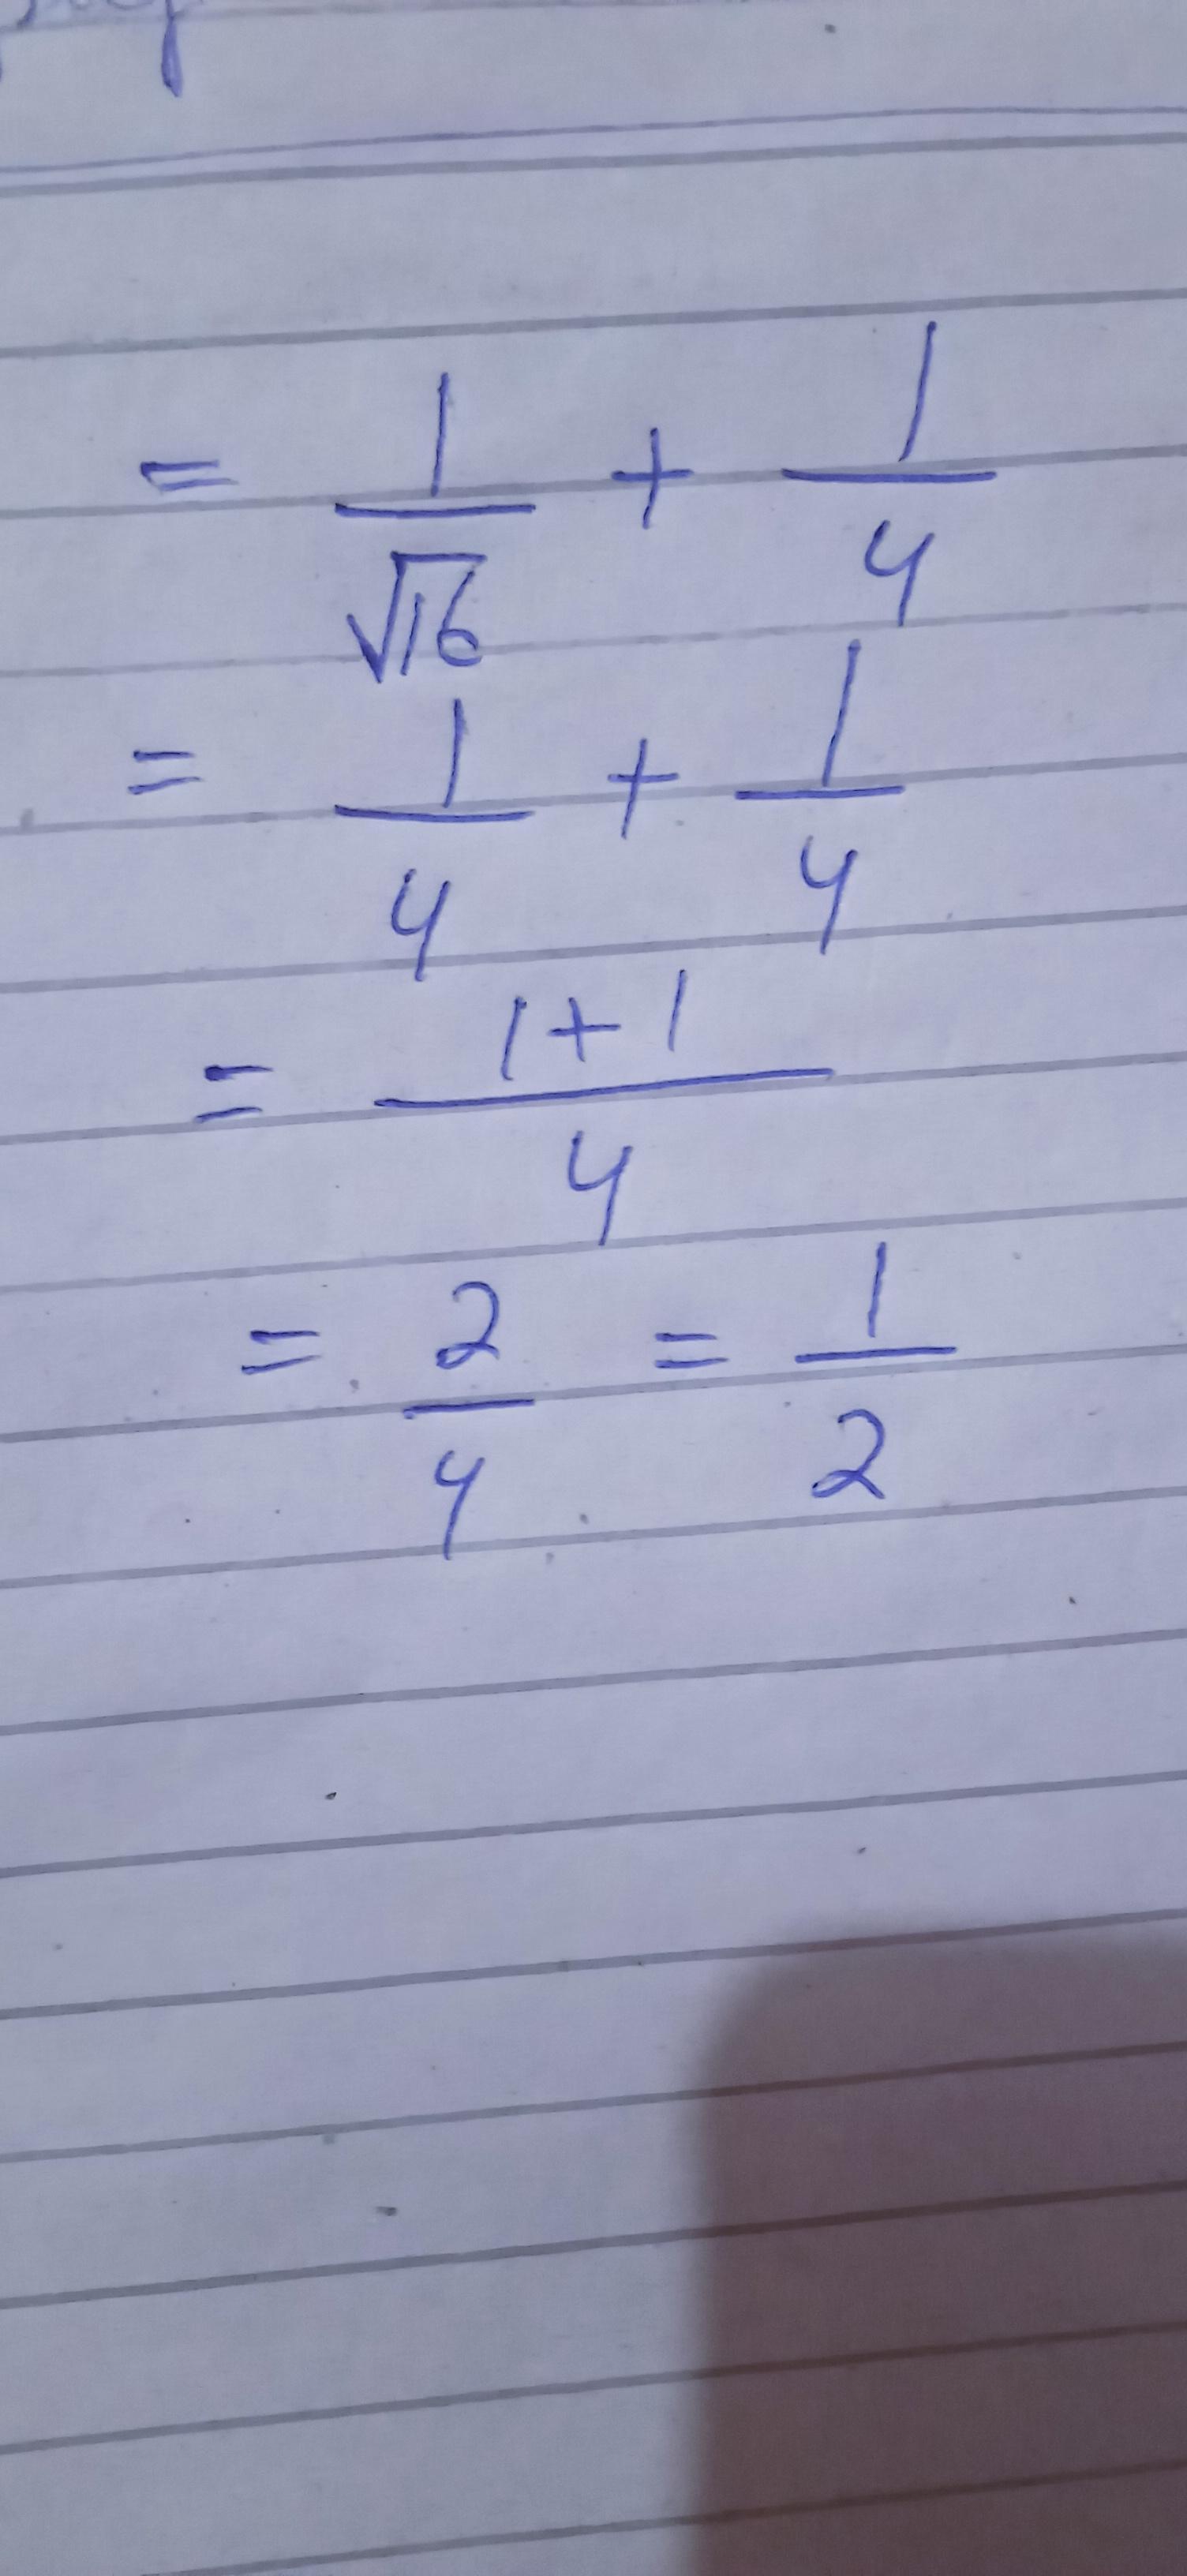 = 1/√16 + 1/4
= 1/4 + 1/4
= (1+1)/4
= 2/4 = 1/2